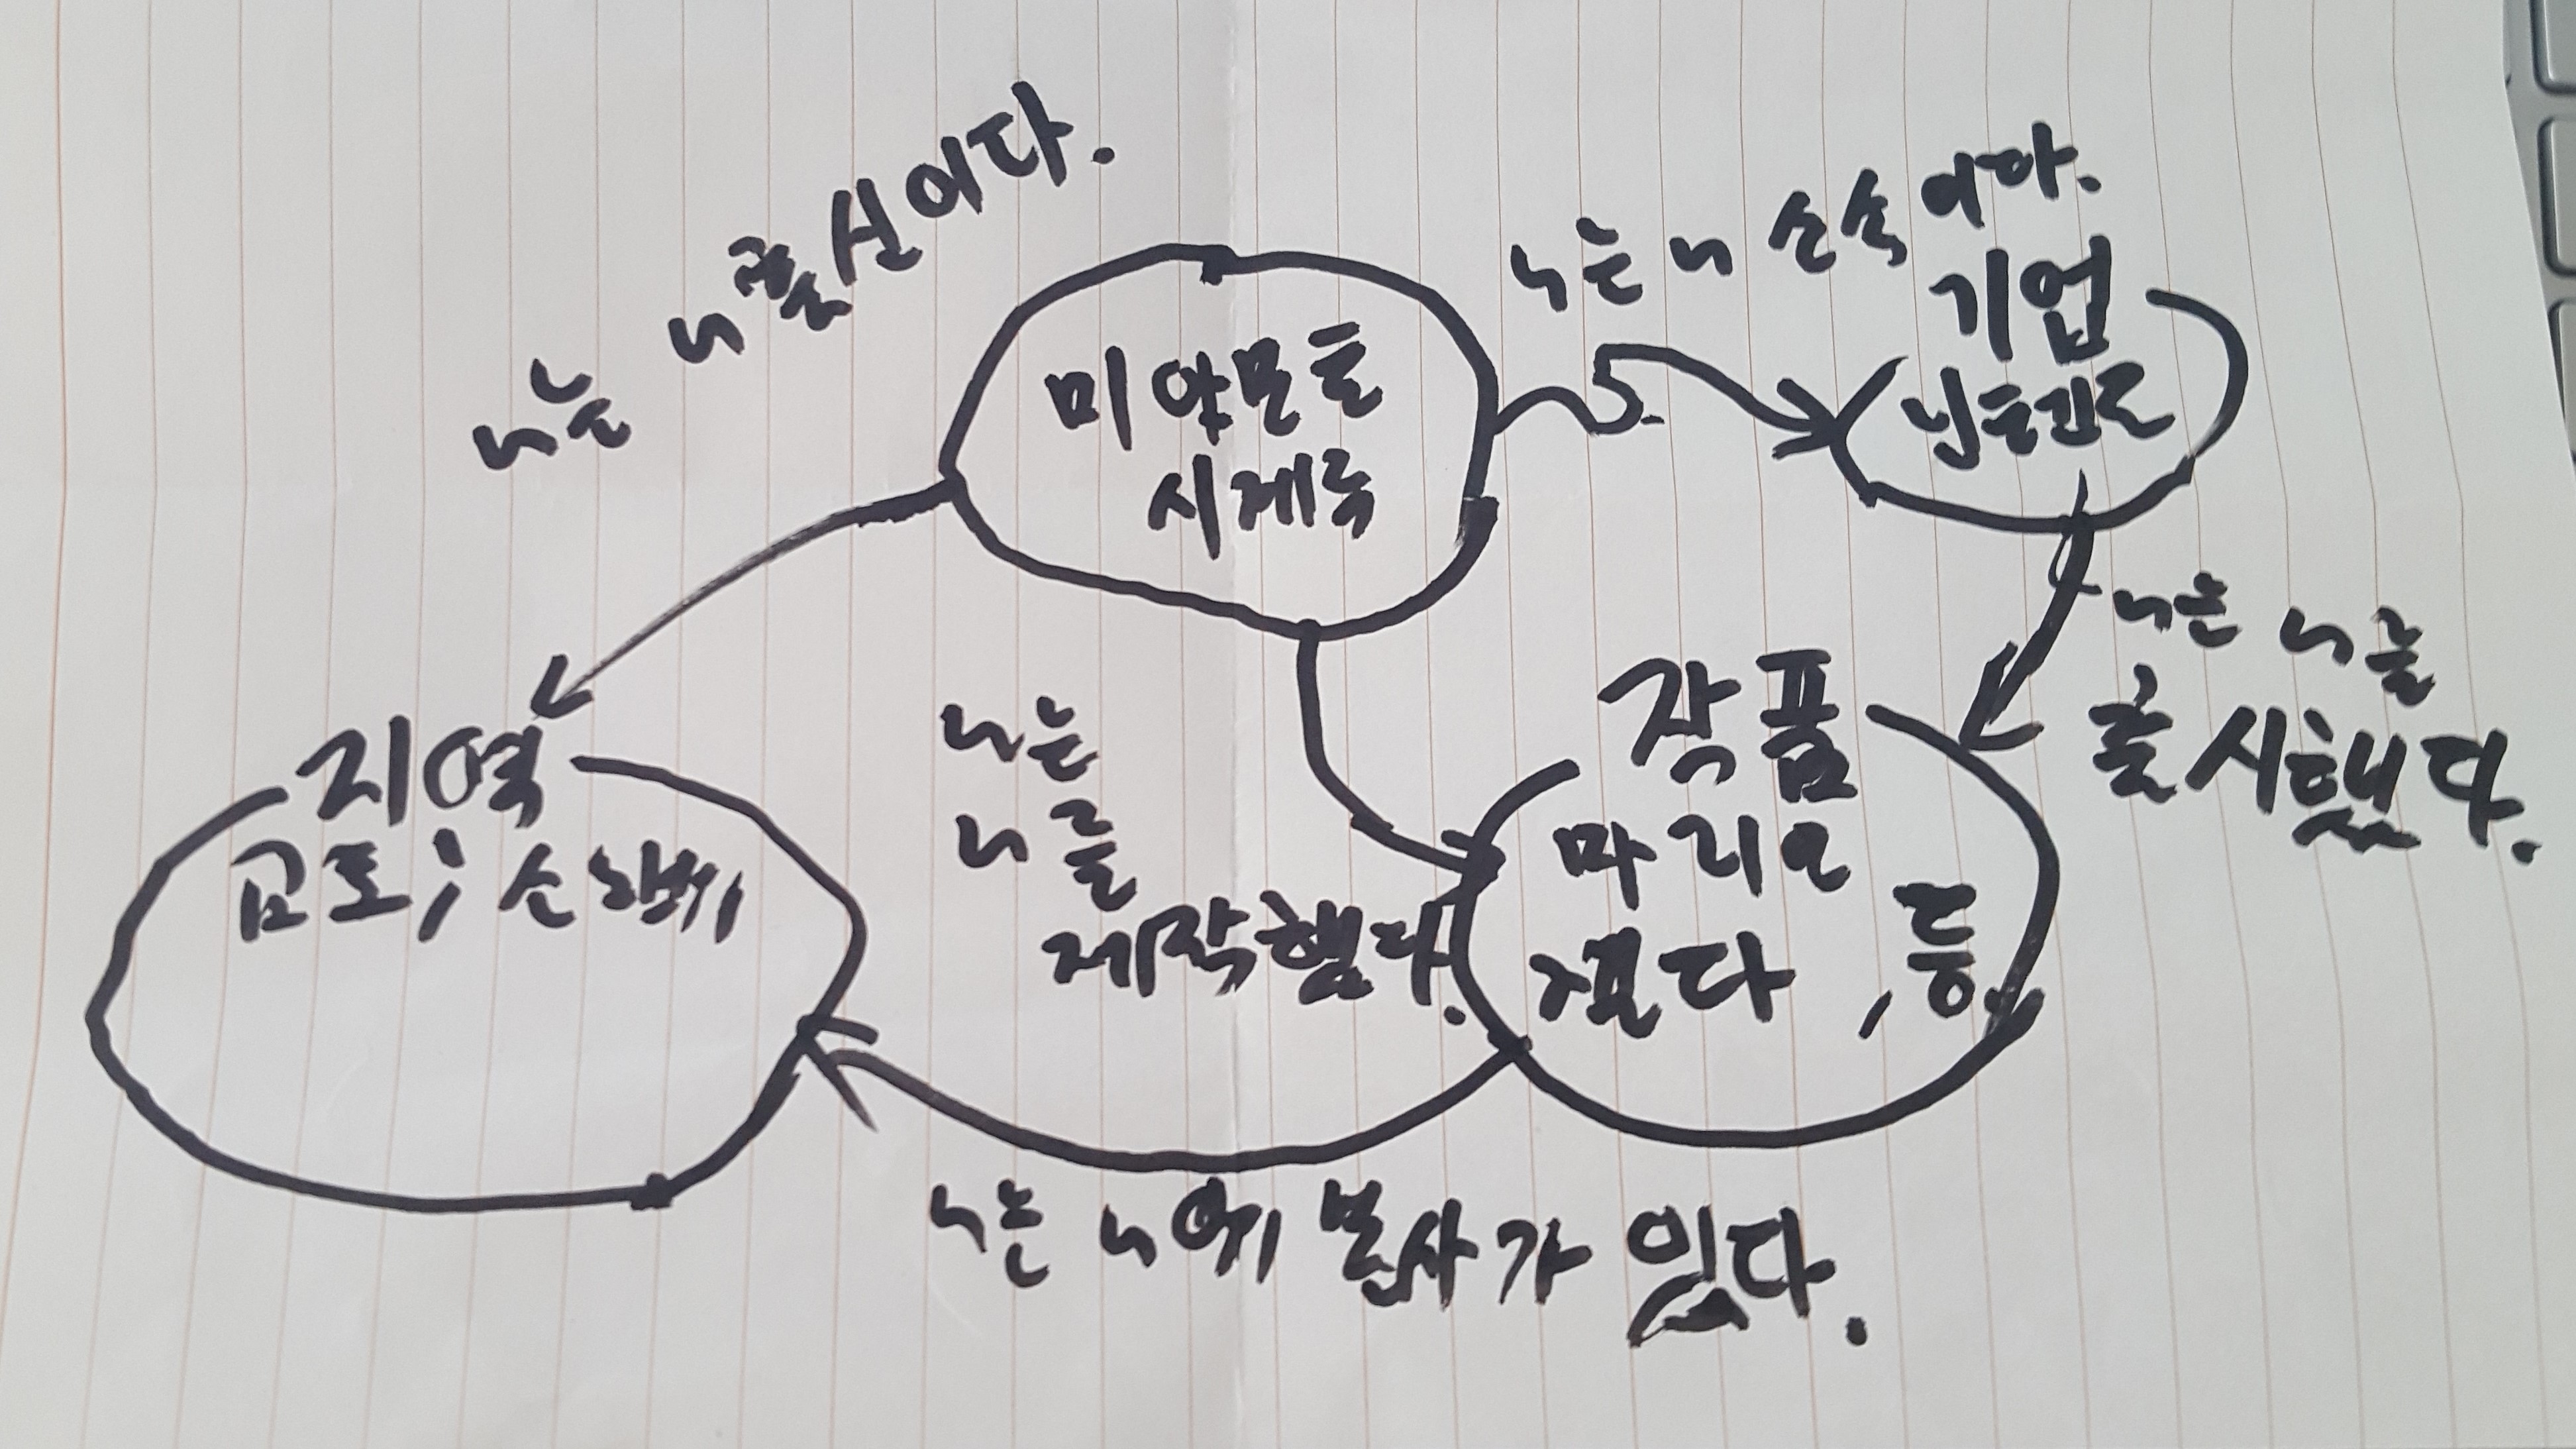 ~는 ~출신이다.
~는 ~ 소속이다.
미야모토
시게루
기업
닌텐도
~는 ~를
출시했다.
지역
교토, 소노베
~는
~를
제작했다.
작품
마리오
젤다, 등
~는 ~에 본사가 있다.